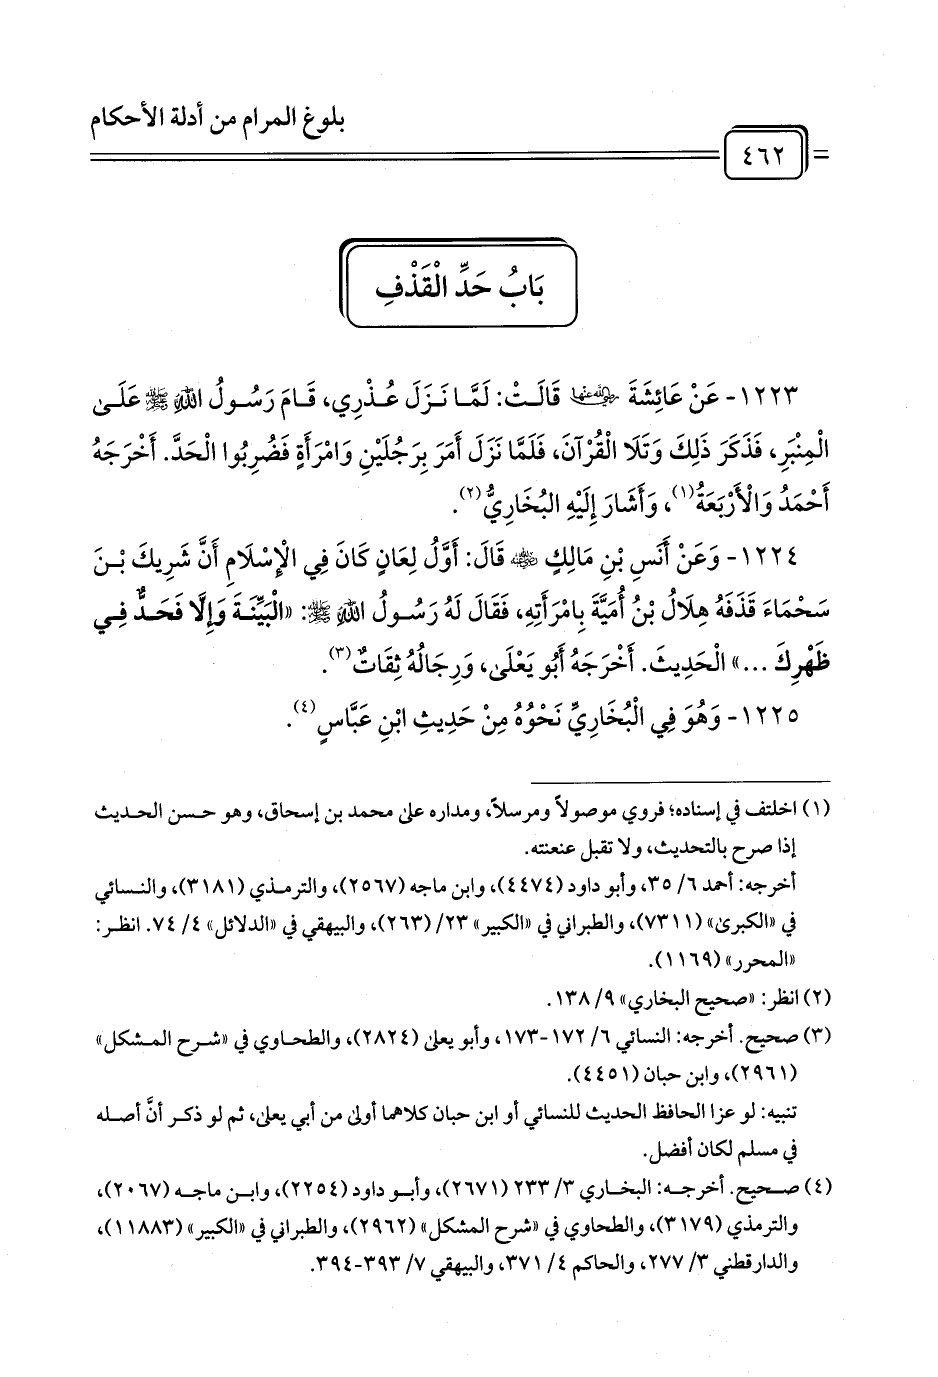 بلوغ المرام من أدلة الأحكام
٤٦٢
بَابُ حَدِّ الْقَذْفِ
١٢٢٣- عَنْ عَائِشَةَ رضي الله عنها قَالَتْ: لَمَّا نَزَلَ عُذْرِي، قَامَ رَسُولُ اللهِ ﷺ عَلَىٰ
الْمِنْبَرِ، فَذَكَرَ ذَلِكَ وَتَلَا الْقُرْآنَ، فَلَمَّا نَزَلَ أَمَرَ بِرَجُلَيْنِ وَامْرَأَةٍ فَضُرِبُوا الْحَدَّ. أَخْرَجَهُ
أَحْمَدُ وَالْأَرْبَعَةُ(١)، وَأَشَارَ إِلَيْهِ الْبُخَارِيُّ(٢).
١٢٢٤- وَعَنْ أَنَسِ بْنِ مَالِكٍ رضي الله عنه قَالَ: أَوَّلُ لِعَانٍ كَانَ فِي الْإِسْلَامِ أَنَّ شَرِيكَ بْنَ
سَحْمَاءَ قَذَفَهُ هِلَالُ بْنُ أُمَيَّةَ بِامْرَأَتِهِ، فَقَالَ لَهُ رَسُولُ اللهِ ﷺ: «الْبَيِّنَةَ وَإِلَّا فَحَدٌّ فِي
ظَهْرِكَ ...» الْحَدِيثَ. أَخْرَجَهُ أَبُو يَعْلَىٰ، وَرِجَالُهُ ثِقَاتٌ(٣).
١٢٢٥- وَهُوَ فِي الْبُخَارِيِّ نَحْوُهُ مِنْ حَدِيثِ ابْنِ عَبَّاسٍ(٤).
(١) اختلف في إسناده؛ فروي موصولاً ومرسلاً، ومداره علىٰ محمد بن إسحاق، وهو حسن الحديث
إذا صرح بالتحديث، ولا تقبل عنعنته.
أخرجه: أحمد ٦/ ٣٥، وأبو داود (٤٤٧٤)، وابن ماجه (٢٥٦٧)، والترمذي (٣١٨١)، والنسائي
في «الكبرىٰ» (٧٣١١)، والطبراني في «الكبير» ٢٣/ (٢٦٣)، والبيهقي في «الدلائل» ٤/ ٧٤. انظر:
«المحرر» (١١٦٩).
(٢) انظر: «صحيح البخاري» ٩/ ١٣٨.
(٣) صحيح. أخرجه: النسائي ٦/ ١٧٢-١٧٣، وأبو يعلىٰ (٢٨٢٤)، والطحاوي في «شرح المشكل»
(٢٩٦١)، وابن حبان (٤٤٥١).
تنبيه: لو عزا الحافظ الحديث للنسائي أو ابن حبان كلاهما أولىٰ من أبي يعلىٰ، ثم لو ذكر أنَّ أصله
في مسلم لكان أفضل.
(٤) صحيح. أخرجه: البخاري ٣/ ٢٣٣ (٢٦٧١)، وأبو داود (٢٢٥٤)، وابن ماجه (٢٠٦٧)،
والترمذي (٣١٧٩)، والطحاوي في «شرح المشكل» (٢٩٦٢)، والطبراني في «الكبير» (١١٨٨٣)،
والدارقطني ٣/ ٢٧٧، والحاكم ٤/ ٣٧١، والبيهقي ٧/ ٣٩٣-٣٩٤.